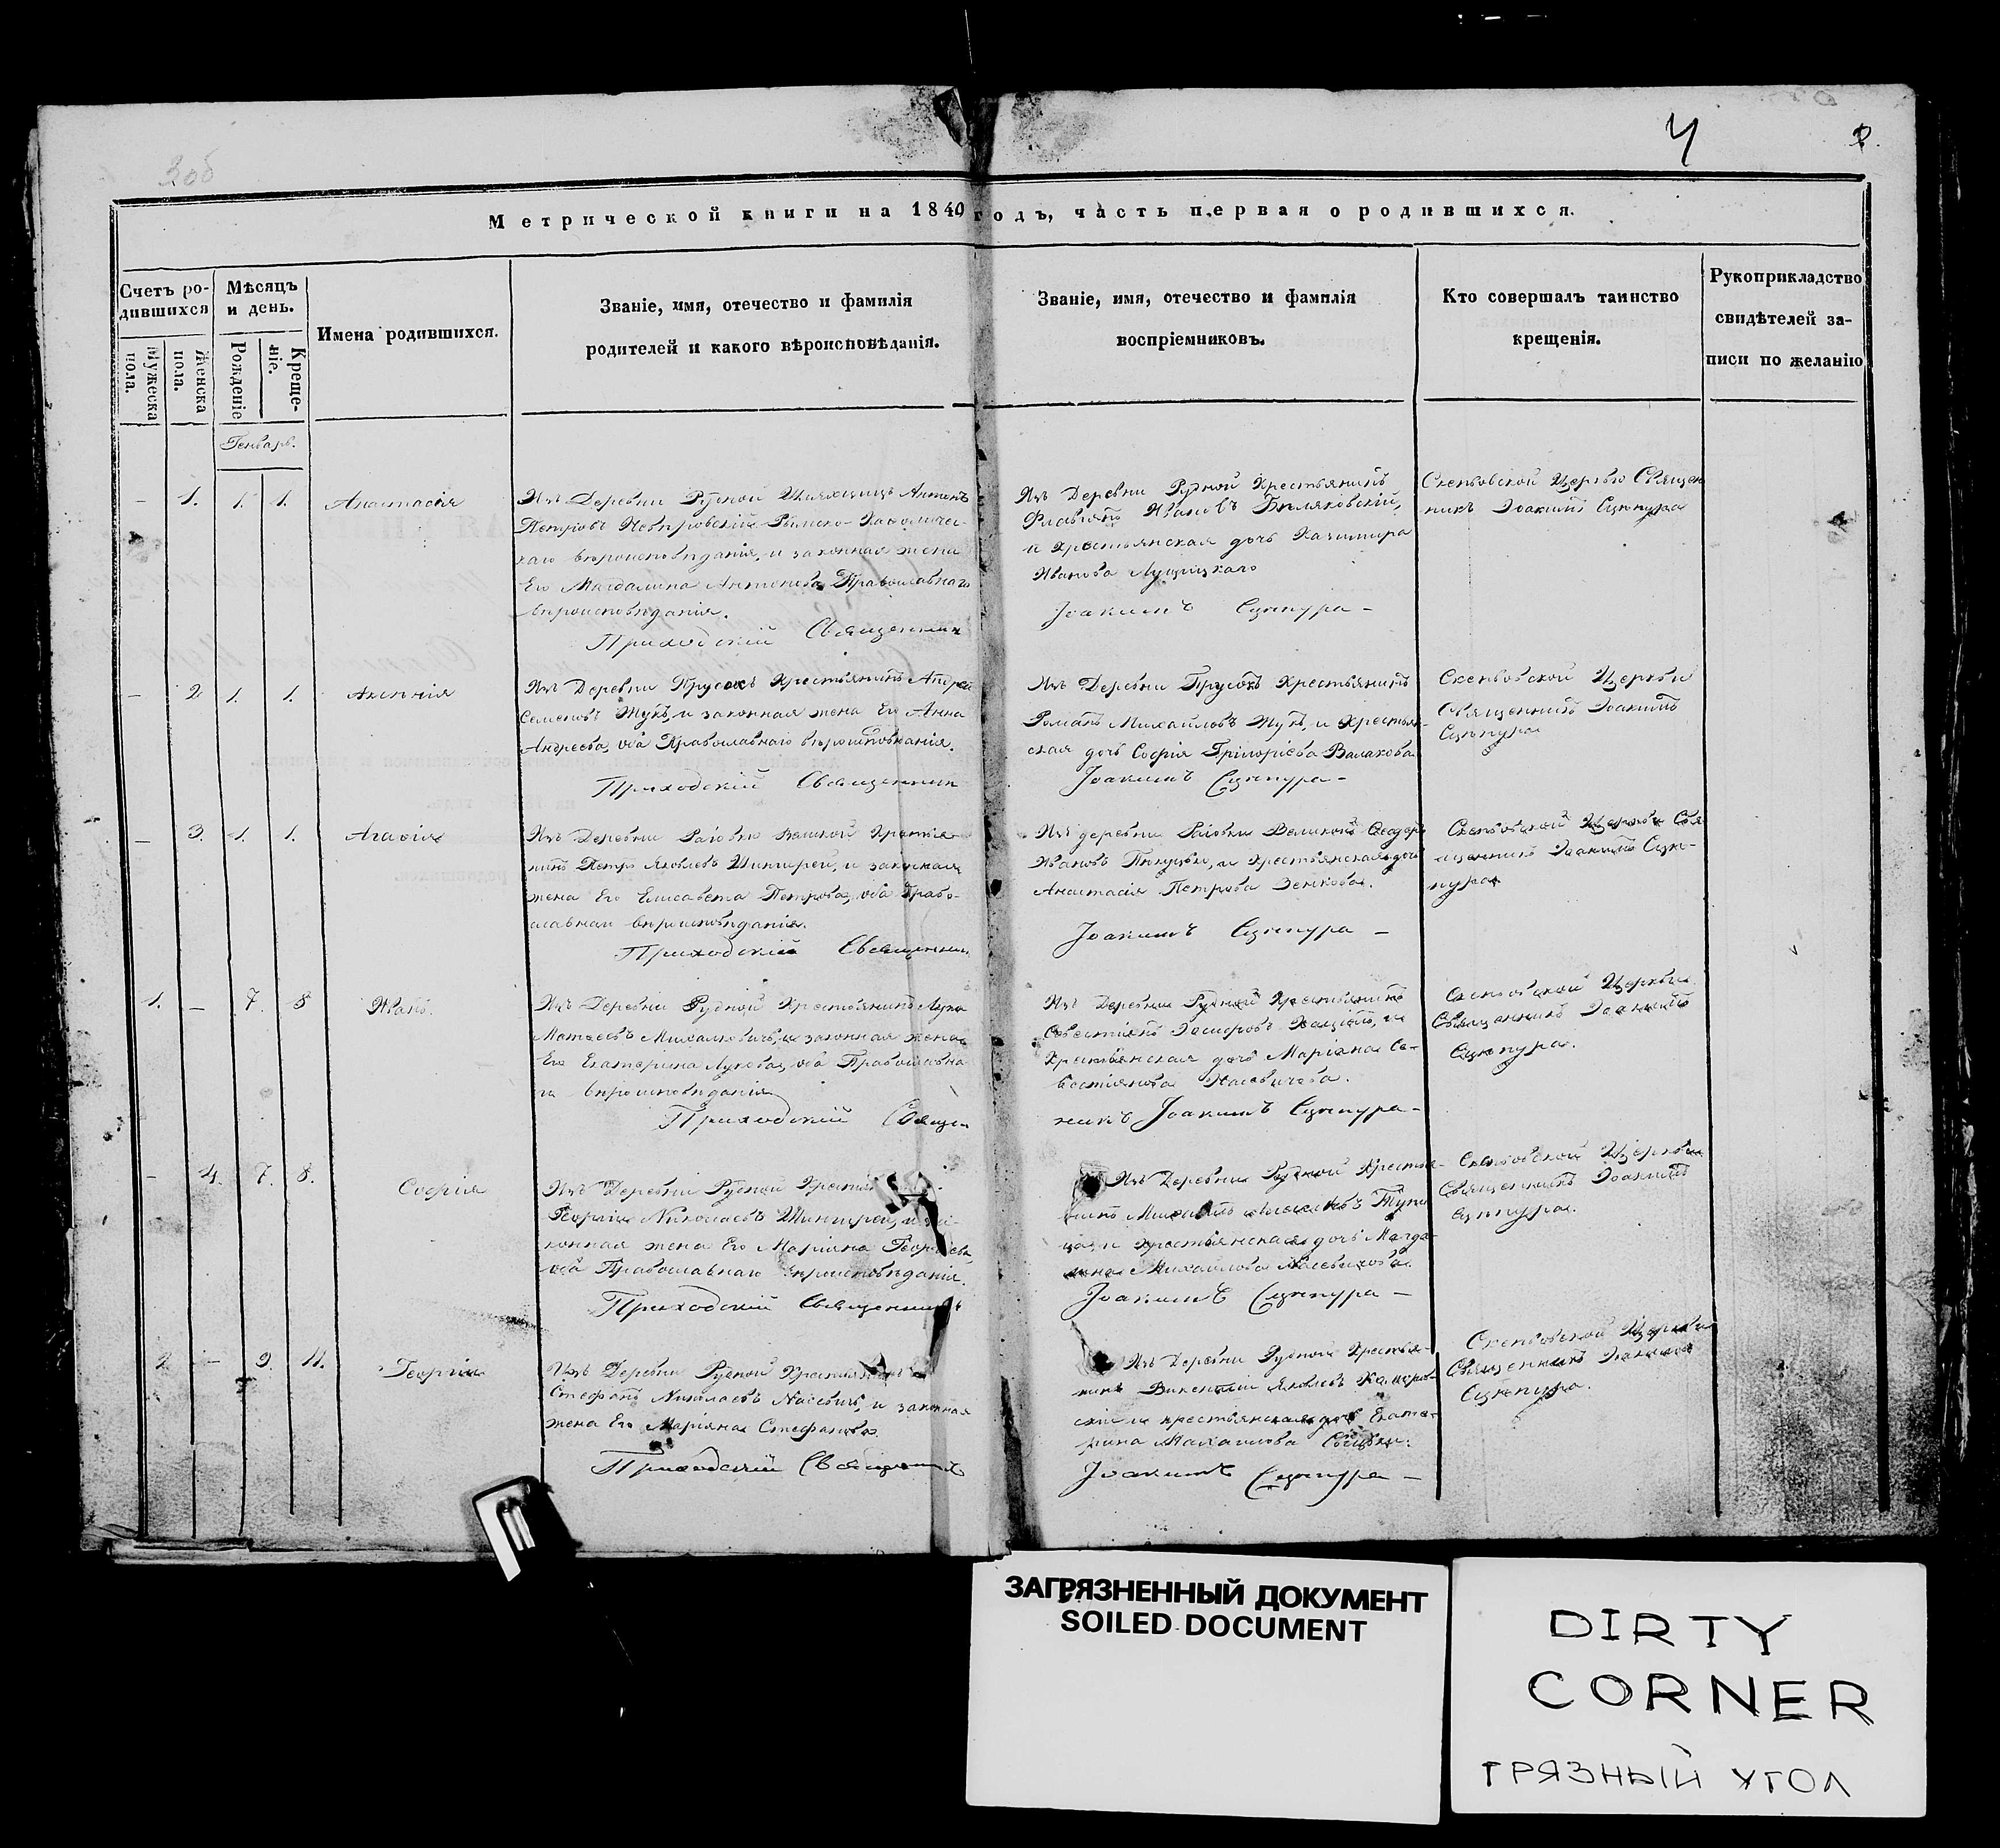 4
Метрической книги на 1840 годъ, часть первая о родившихся.
Счетъ ро-
дившихся
Мужеска
пола.
Женска
пола.
Мѣсяцъ
и день.
Рожденіе
Креще-
ніе.
Имена родившихся.
Званіе, имя, отечество и фамилія
родителей и какого вѣроисповѣданія.
Званіе, имя, отечество и фамилія
воспріемниковъ.
Кто совершалъ таинство
крещенія.
Рукоприкладство
свидѣтелей за-
писи по желанію
Генварь.
— 1. 1. 1. Анастасія
Изъ Деревни Рудной Шляхтичъ Антонъ
Петровъ Римско-Католичес-
каго вѣроисповѣданія, и законная жена
Его Магдалина Антонова Православнаго
вѣроисповѣданія.
Приходскій Священникъ
Изъ Деревни Рудной Крестьянинъ
Ивановъ
и крестьянская дочь Казимира
Иванова
Іоакимъ Сцепура —
Церкви Священ
никъ Іоакимъ Сцепура
— 2 1. 1. Аксенія
Изъ Деревни Прусокъ Крестьянинъ Андрей
Семеновъ Жукъ, и законная жена Его Анна
Андреева, оба Православнаго вѣроисповѣданія.
Приходскій Священник
Изъ Деревни Прусокъ Крестьянинъ
Романъ Михайловъ Жукъ, и Крестьян-
ская дочь Софія Григоріева Валахова
Іоакимъ Сцепура —
Церкви
Священникъ Іоакимъ
Сцепура
— 3. 1. 1. Агафія
Изъ Деревни Великой Крестья-
нинъ Петръ Яковлевъ и законная
жена Его Елисавета Петрова, оба Право-
славнаго вѣроисповѣданія.
Приходскій Священник
Изъ деревни Великой Ѳеодоръ
Ивановъ и крестьянская дочь
Анастасія Петрова Зенкова.
Іоакимъ Сцепура —
Церкви Свя
щенникъ Іоакимъ Сце-
пура
1. — 7. 8 Иванъ.
Изъ Деревни Рудной Крестьянинъ Лука
Матвеевъ Михалковичъ, и законная жена
Его Екатерина Лукова, оба Православна
го вѣроисповѣданія
Приходскій Священ
Изъ Деревни Рудной Крестьянинъ
и
крестьянская дочь Маріана Се-
бастіянова
никъ Іоакимъ Сцепура —
Церкви
Священникъ Іоакимъ
Сцепура.
— 4. 7. 8. Софія
Изъ Деревни Рудной
Георгій Николаевъ и за-
конная жена Его Маріана Георгіева
оба Православнаго вѣроисповѣданія.
Приходскій Священникъ
Изъ Деревни Рудной Крестья-
нинъ Михаилъ
и крестьянская дочь Магда-
лина Михайлова
Іоакимъ Сцепура —
Церкви
Священникъ Іоакимъ
Сцепура.
2 — 9. 11. Георгій
Изъ Деревни Рудной Крестьянинъ
Стефанъ Николаевъ и законная
жена Его Маріяна Стефанова.
Приходскій Священникъ
Изъ Деревни Рудной Крестья-
нинъ Викентій Яковлевъ
и крестьянская дочь Екате-
рина
Іоакимъ Сцепура —
Церкви
Священникъ Іоакимъ
Сцепура.
ЗАГРЯЗНЕННЫЙ ДОКУМЕНТ
SOILED DOCUMENT
DIRTY
CORNER
ГРЯЗНЫЙ УГОЛ